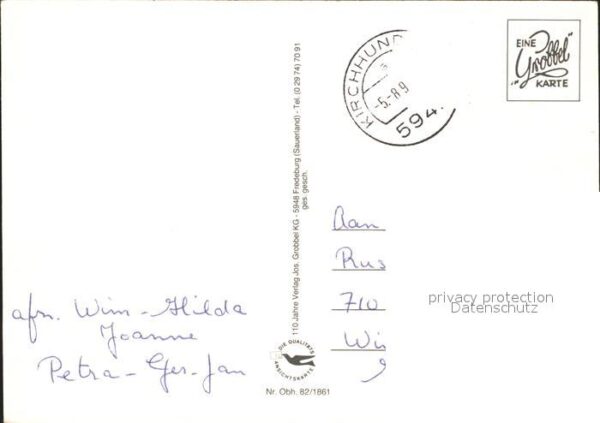 KIRCHHUND
-5.-8.9
594.
EINE
"Grobbel"
KARTE
110 Jahre Verlag Jos. Grobbel KG - 5948 Fredeburg (Sauerland) - Tel. (0 29 74) 70 91
ges. gesch.
Aan
Rus
710
Wi
privacy protection
Datenschutz
afn. Wim - Hilda
Joanne
Petra - Ger-Jan
DIE QUALITÄTS
ANSICHTSKARTE
Nr. Obh. 82/1861